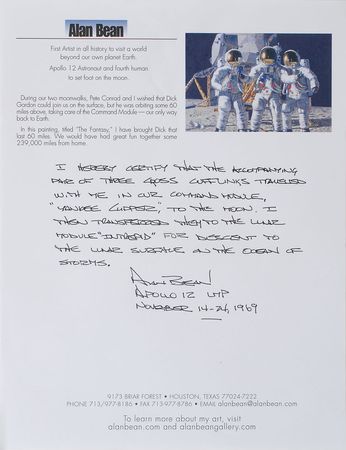 Alan Bean
First Artist in all history to visit a world
beyond our own planet Earth.
Apollo 12 Astronaut and fourth human
to set foot on the moon.
During our two moonwalks, Pete Conrad and I wished that Dick
Gordon could join us on the surface, but he was orbiting some 60
miles above, taking care of the Command Module — our only way
back to Earth.
In this painting, titled "The Fantasy," I have brought Dick that
last 60 miles. We would have had great fun together some
239,000 miles from home.
I HEREBY CERTIFY THAT THE ACCOMPANYING
PAIR OF THREE CROSS CUFFLINKS TRAVELED
WITH ME IN OUR COMMAND MODULE,
"YANKEE CLIPPER," TO THE MOON. I
THEN TRANSFERRED THEM TO THE LUNAR
MODULE "INTREPID" FOR DESCENT TO
THE LUNAR SURFACE ON THE OCEAN OF
STORMS.
ALAN BEAN
APOLLO 12 LMP
NOVEMBER 14-24, 1969
9173 BRIAR FOREST • HOUSTON, TEXAS 77024-7222
PHONE 713/977-8186 • FAX 713-977-8786 • EMAIL alanbean@alanbean.com
To learn more about my art, visit
alanbean.com and alanbeangallery.com